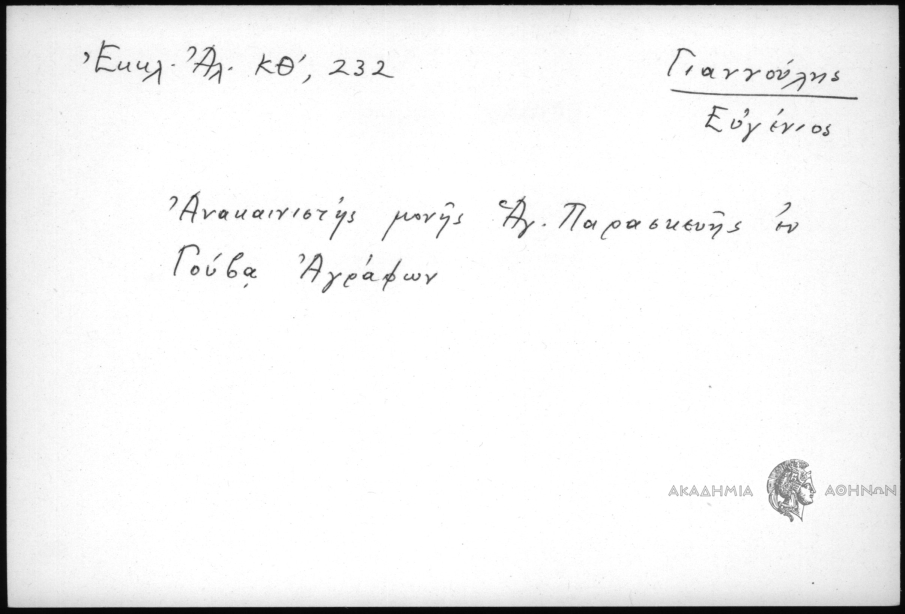 Ἐκκλ. Ἀλ. ΚΘ′, 232
Γιαννούλης
Εὐγένιος
Ἀνακαινιστής μονῆς Ἁγ. Παρασκευῆς ἐν
Γούβᾳ Ἀγράφων
ΑΚΑΔΗΜΙΑ ΑΘΗΝΩΝ